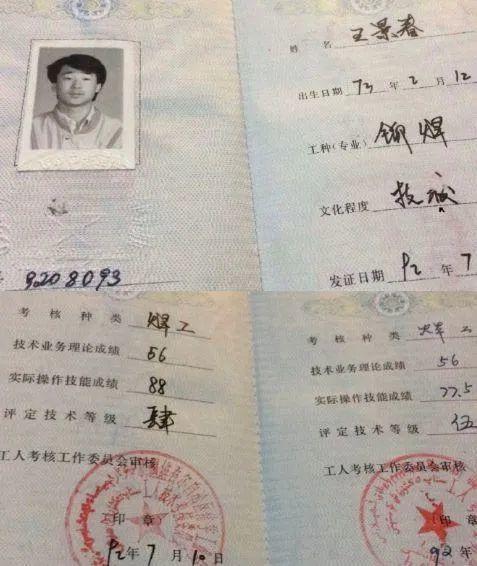 姓名 王景春
出生日期 73 年 2 月 12
工种(专业) 铆焊
文化程度 技
发证日期 92 年 7
9208093
考核种类 焊工
技术业务理论成绩 56
实际操作技能成绩 88
评定技术等级 肆
工人考核工作委员会审核
(印章)
92 年 7 月 10 日
考核种类
技术业务理论成绩 56
实际操作技能成绩 77.5
评定技术等级 伍
工人考核工作委员会审核
(印章)
92 年